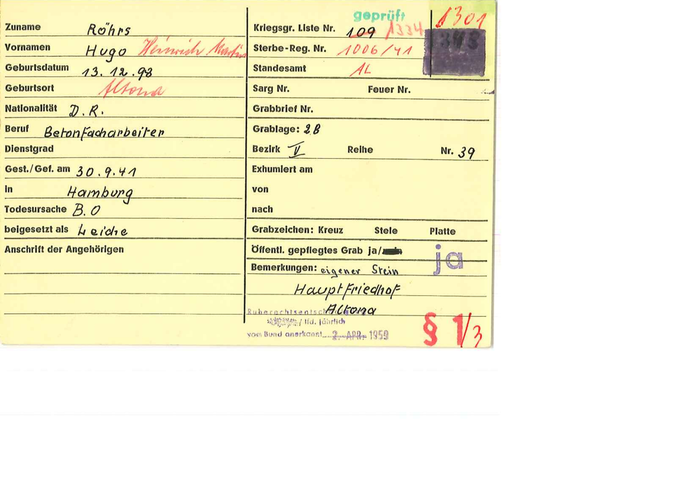 Zuname Röhrs
Vornamen Hugo Heinrich Martin
Geburtsdatum 13.12.98
Geburtsort Altona
Nationalität D.R.
Beruf Betonfacharbeiter
Dienstgrad
Gest./Gef. am 30.9.41
in Hamburg
Todesursache B.O
beigesetzt als Leiche
Anschrift der Angehörigen
geprüft
1301
Kriegsgr. Liste Nr. 109 1334
Sterbe-Reg. Nr. 1006/41
Standesamt AL
Sarg Nr. Feuer Nr.
Grabbrief Nr.
Grablage: 28
Bezirk V Reihe Nr. 39
Exhumiert am
von
nach
Grabzeichen: Kreuz Stele Platte
Öffentl. gepflegtes Grab ja/
ja
Bemerkungen: eigener Stein
Hauptfriedhof
Altona
lfd. jährlich
vom Bund anerkannt 2. APR. 1959
§ 1/3